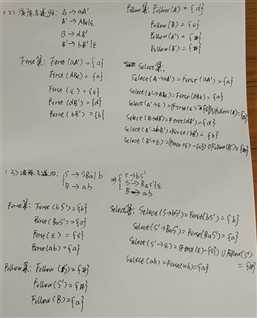 (2) 消除左递归: A → aA'
A' → ABe|ε
B → dB'
B' → bB'|ε
First集: First(aA') = {a}
First(ABe) = {a}
First(ε) = {ε}
First(dB') = {d}
First(bB') = {b}
Follow集: Follow(A) = {d}
Follow(B) = {e}
Follow(A') = {#}
Follow(B') = {#}
Select集:
Select(A→aA') = First(aA') = {a}
Select(A'→ABe) = First(ABe) = {a}
Select(B→dB') = First(dB') = {d}
Select(B'→bB') = First(bB') = {b}
S → Bab|b
B → ab
S → bS'
S' → BaS'|ε
B → ab
First集: First(bS') = {b}
First(BaS') = {a}
First(ε) = {ε}
First(ab) = {a}
Follow集: Follow(S) = {#}
Follow(S') = {#}
Follow(B) = {a}
Select集: Select(S→bS') = First(bS') = {b}
Select(S'→BaS') = First(BaS') = {a}
Select(S'→ε) = (First(ε)-{ε}) ∪ Follow(S')
= {#}
Select(ab) = First(ab) = {a}